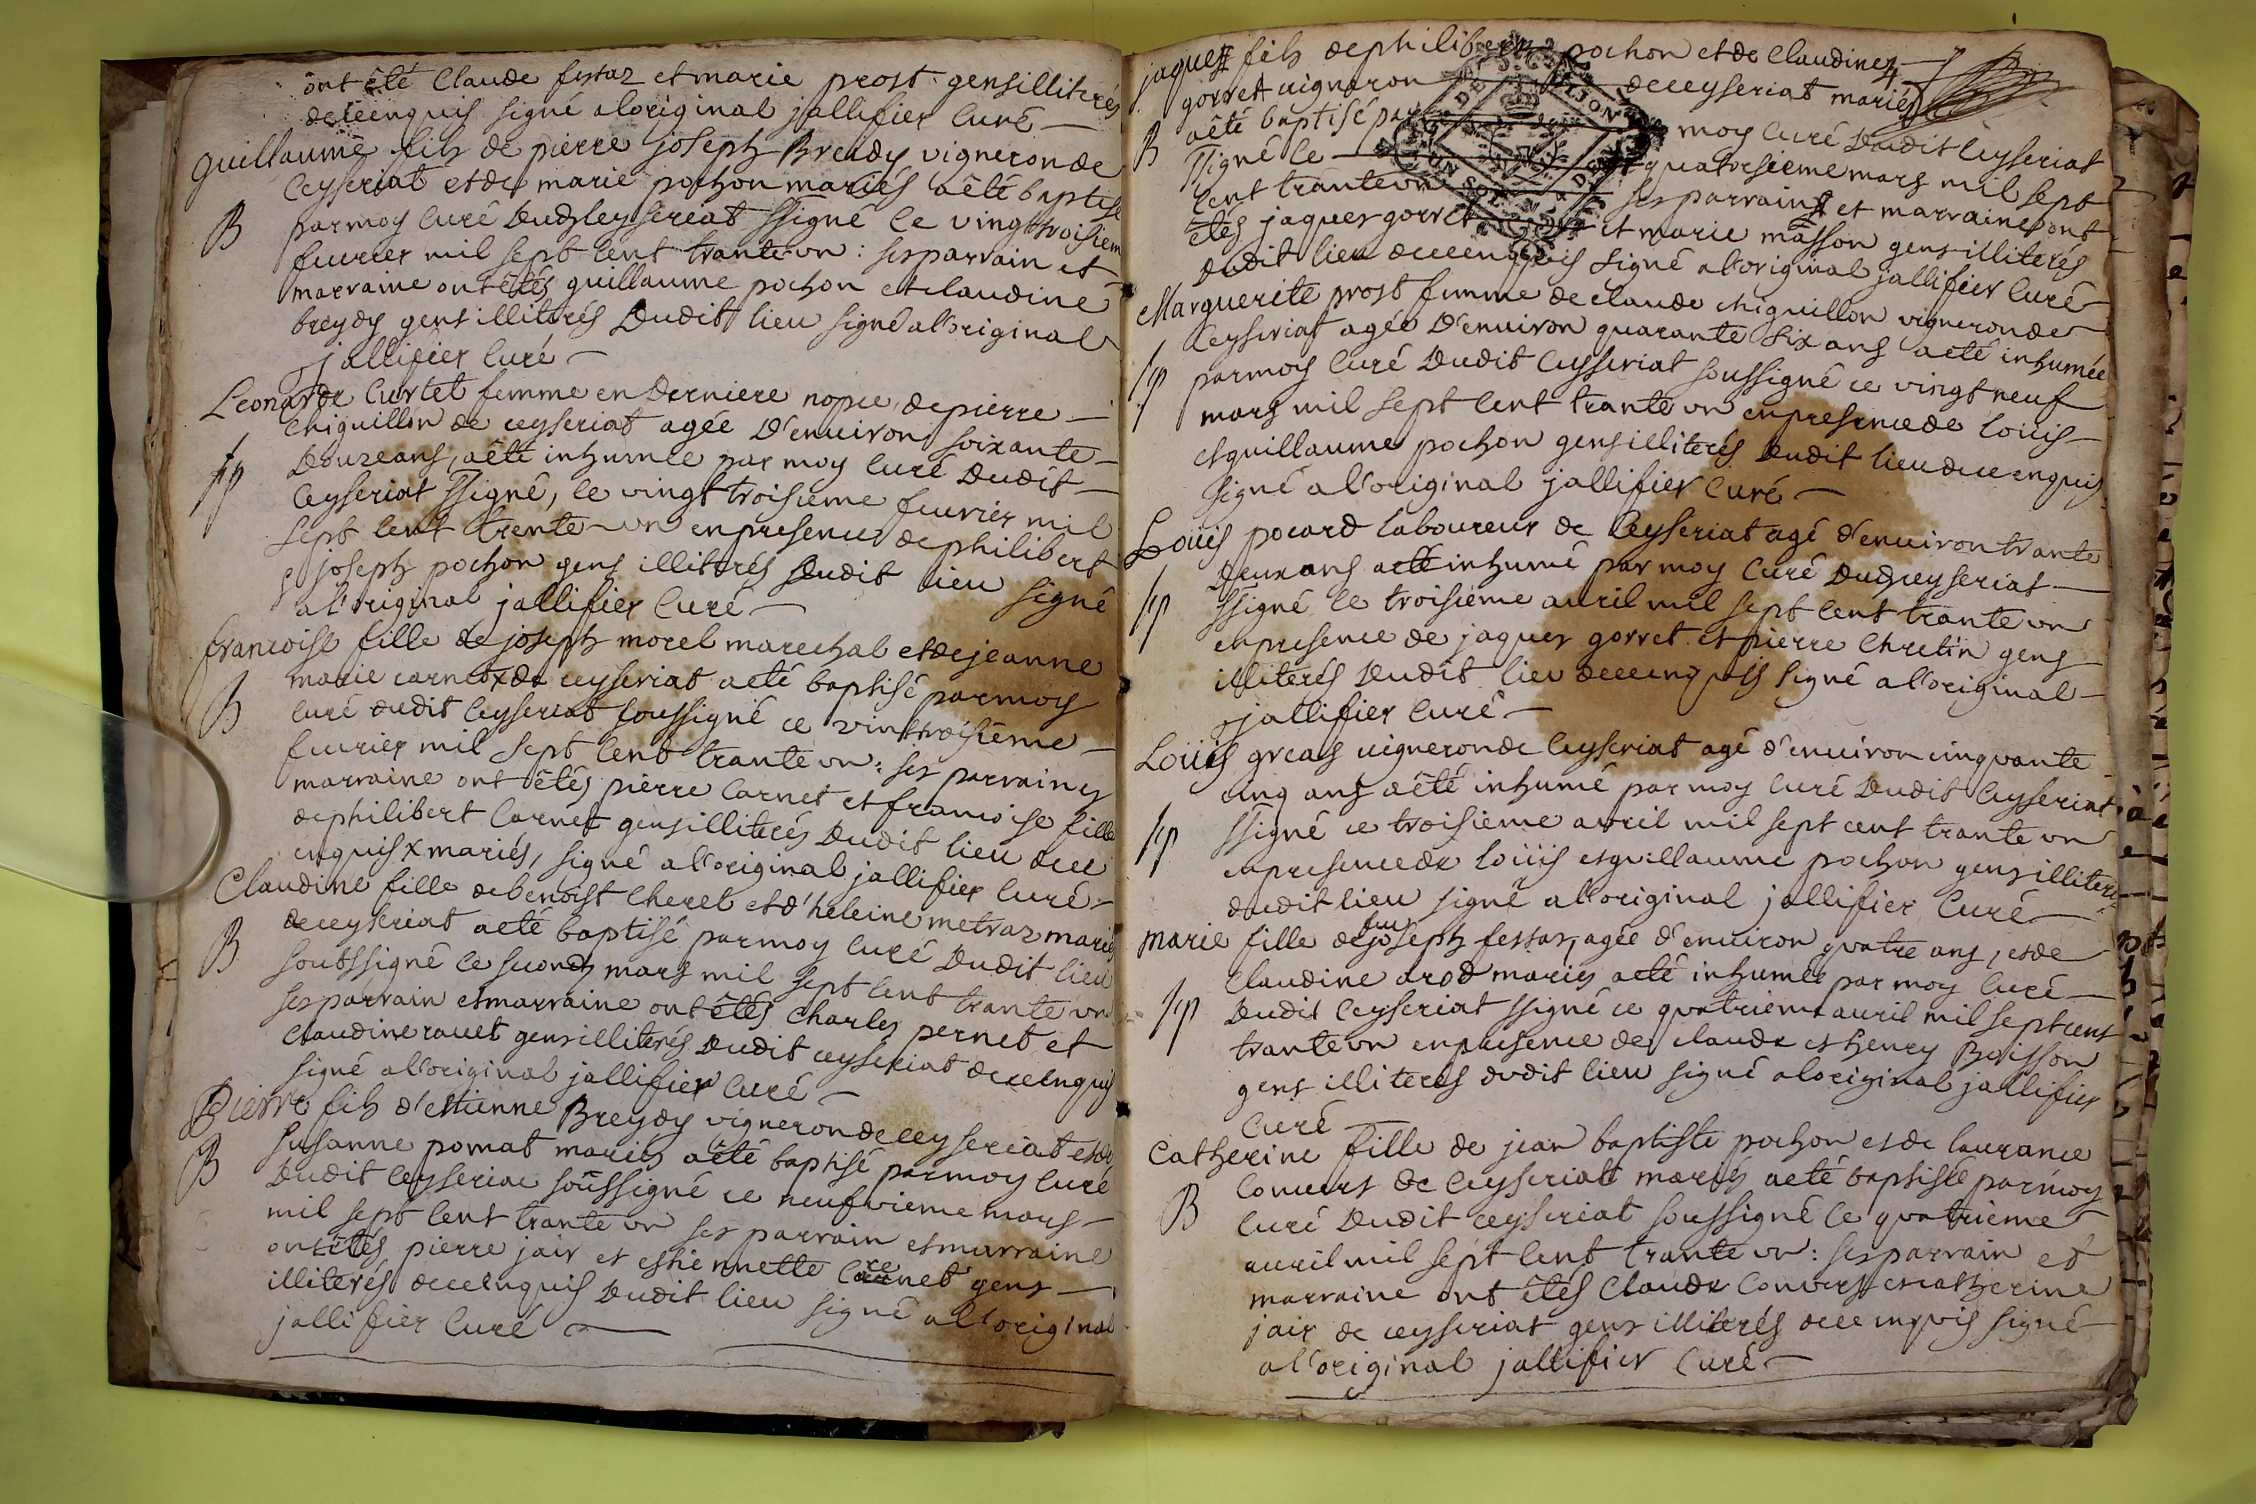 ont été Claude festaz et marie prost gens illiterés
de ce enquis signé a loriginal jallifier Curé
guillaume fils de pierre joseph Breydy vigneron de
Ceyseriat et de marie pochon mariés a êté baptisé
par moy Curé dudt Ceysereat ssigné le vingt troisiem
feurier mil sept cent trante vn : ses parrain et
marraine ont êtés guillaume pochon et claudine
breydy gens illiterés dudit lieu signé a l'original
jallifier Curé
Leonarde Curtet femme en derniere nopce de pierre
Chiguillon de ceyseriat agée d'enuiron soixante
B
douze ans, a êté inhumée par moy Curé dudit
Sp
Ceyseriat ssigné, le vingt troisieme feurier mil
sept cent trente vn en presence de philibert
& joseph pochon gens illiterés dudit lieu signé
a l'original jallifier Curé
francoise fille de joseph morel marechal et de jeanne
marie carnet x de ceyseriat a eté baptisé par moy
B
Curé dudit Ceyseriat soussigné ce vint troisiême
feurier mil sept cent trante vn : ses parrain &
marraine ont êtés pierre Carnet et francoise fille
de philibert Carnet gens illiterés dudit lieu de ce
enquis x mariés, signé a l'original jallifier Curé
Claudine fille de benoist Cherel et d'heleine metraz mariés
de ceyseriat a eté baptisé par moy Curé dudit lieu
B
soubssigné le second mars mil sept cent trante vn
ses parrain et marraine ont êtés Charles pernet et
Claudine rauet gens illiterés dudit ceyseriat de ce enquis
signé a l'original jallifier Curé
Pierre fils d'estienne Breydy vigneron de ceyseriat et de
Susanne pomat mariés a êté baptisé par moy Curé
B
dudit Ceyseriac soussigné ce neufvieme mars
mil sept cent trante vn ses parrain et marraine
ont étés pierre jair et estiennette Carnet gens
illiterés de ce enquis dudit lieu signé a l'original
jallifier Curé
jaques fils de philibert pochon et de Claudine 4
gorret uigneron de ceyseriat mariés
B
a êté baptisé par moy Curé dudit Ceyseriat
ssigné le quatorsieme mars mil sept
cent trante vn ses parrain et marraine ont
êtés jaques gorret et marie masson gens illiterés
dudit lieu de ce enquis signé a l'original jallifier Curé
Marguerite prost femme de claude chiguillon vigneron de
Ceyseriat agée d'enuiron quarante six ans a eté inhumée
Sp
par moy Curé dudit Ceyseriat soussigné ce vingt neuf
mars mil sept cent trante vn en presence de Loüis
et guillaume pochon gens illiterés dudit lieu de ce enquis
signé a l'original jallifier Curé
Loüis pocard laboureur de Ceyseriat agé d'enuiron trante
deux ans a eté inhumé par moy Curé dudt ceyseriat
Sp
ssigné le troisiéme auril mil sept cent trante vn
en presence de jaques gorret et pierre Chretin gens
illiterés dudit lieu de ce enquis signé a l'original
jallifier Curé
Loüis greas uigneron de Ceyseriat agé d'enuiron cinquante
cinq ans a êté inhumé par moy Curé dudit Ceyseriat
Sp
ssigné ce troisieme avril mil sept cent trante vn
en presence de Loüis et guillaume pochon gens illiterés
dudit lieu signé a l'original jallifier Curé
marie fille de feu joseph festaz, agée d'enuiron quatre ans, et de
Claudine arod mariés a eté inhumée par moy Curé
Sp
dudit Ceyseriat ssigné ce quatrieme auril mil sept cent
trante vn en presence de claude et henry Buisson
gens illiterés dudit lieu signé a loriginal jallifier
Curé
Catherine fille de jean baptiste pochon et de laurance
Conuers de Ceyseriat mariés a eté baptisée par moy
B
Curé dudit ceyseriat soussigné le quatrieme
auril mil sept cent trante vn : ses parrain et
marraine ont êtés Claude Conuers et catherine
jair de ceyseriat gens illiterés de ce enquis signé
a l'original jallifier Curé